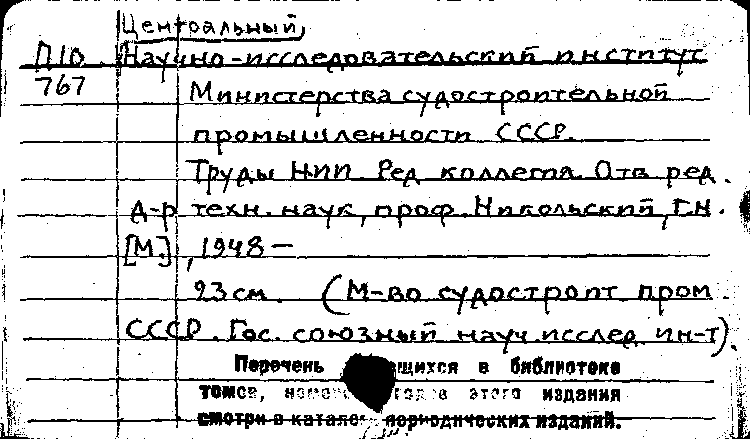 Центральный
П10 Научно-исследовательский институт
767 Министерства судостроительной
промышленности СССР.
Труды НИИ. Ред. коллегия. Отв. ред.
д-р техн. наук, проф. Никольский, Г.Н.
[М.], 1948 –
23 см. (М-во судостроит. пром.
СССР. Гос. союзный науч. исслед. ин-т).
Перечень в библиотеке
томов, этого издания
смотри в каталоге периодических изданий.